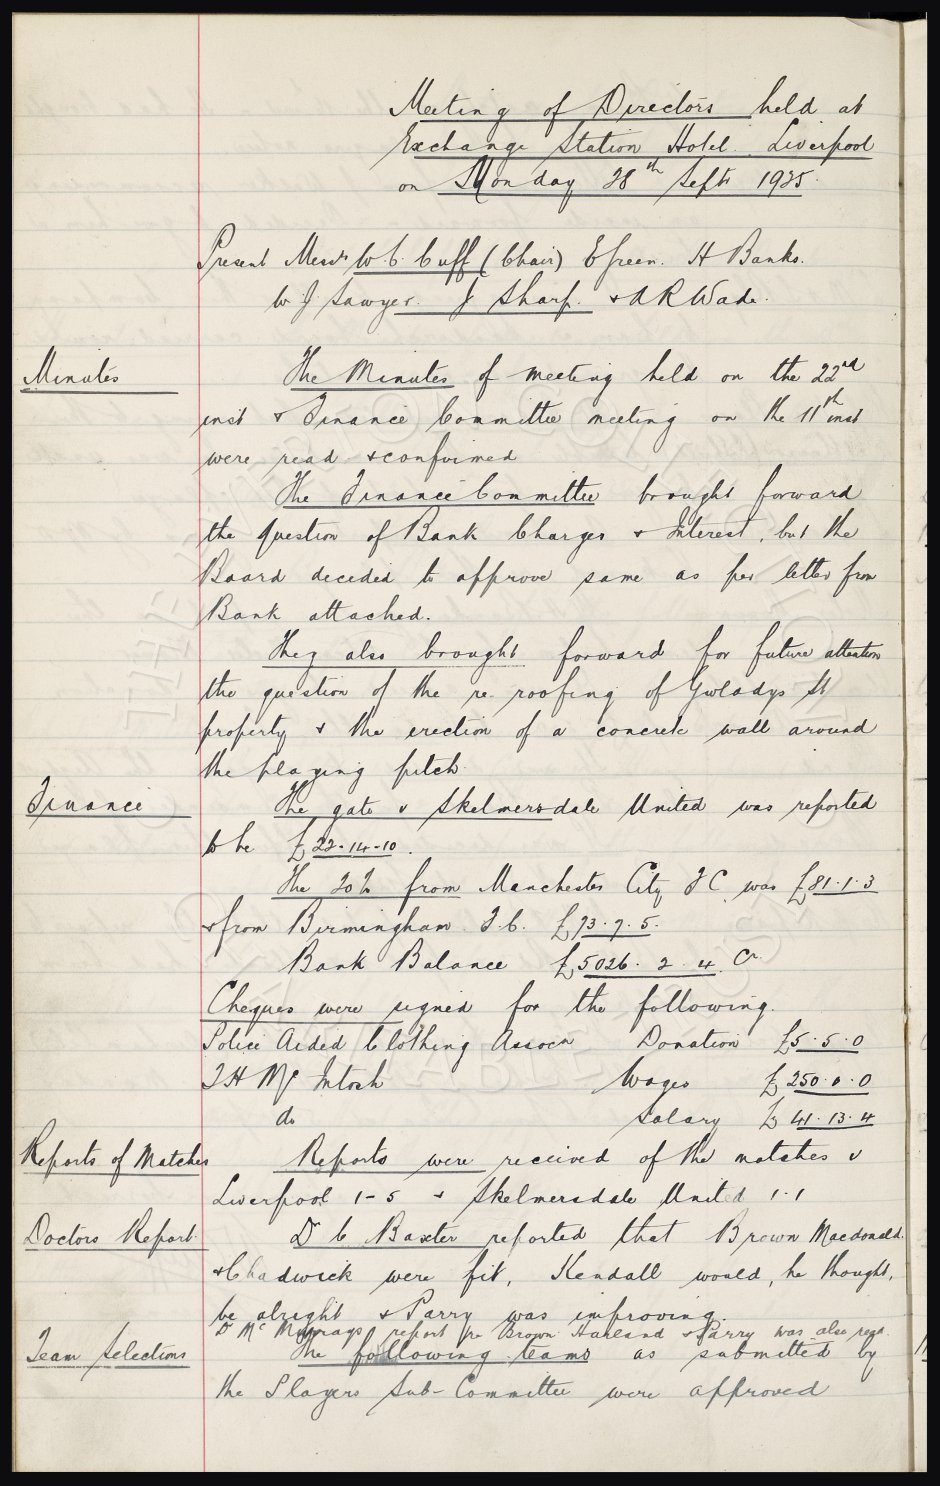 Meeting of Directors held at
Exchange Station Hotel Liverpool
on Monday 28th Septr 1925.
Present Messrs W.C. Cuff (Chair) E Green. H Banks.
W J Sawyer. J Sharp. & A R Wade.
Minutes
The Minutes of meeting held on the 22nd
inst & Finance Committee meeting on the 11th inst
were read & confirmed
The Finance Committee brought forward
the question of Bank Charges & Interest, but the
Board decided to approve same as per letter from
Bank attached.
They also brought forward for future attention
the question of the re-roofing of Gwladys St
property & the erection of a concrete wall around
the playing pitch.
Finance
The gate v Skelmersdale United was reported
to be £22-14-10.
The 20% from Manchester City F C was £81.1.3
& from Birmingham F.C. £73.7.5.
Bank Balance £5026. 2. 4. Cr.
Cheques were signed for the following.
Police Aided Clothing Assocn Donation £5.5.0
T H McIntosh Wages £250.0.0
do Salary £41.13.4
Reports of Matches
Reports were received of the matches v
Liverpool 1-5 & Skelmersdale United 1.1
Doctors Report.
Dr C Baxter reported that Brown Macdonald
& Chadwick were fit, Kendall would, he thought,
be alright & Parry was improving
Dr Mc report re Brown & Parry was also read.
Team Selections
The following teams as submitted by
the Players Sub-Committee were approved